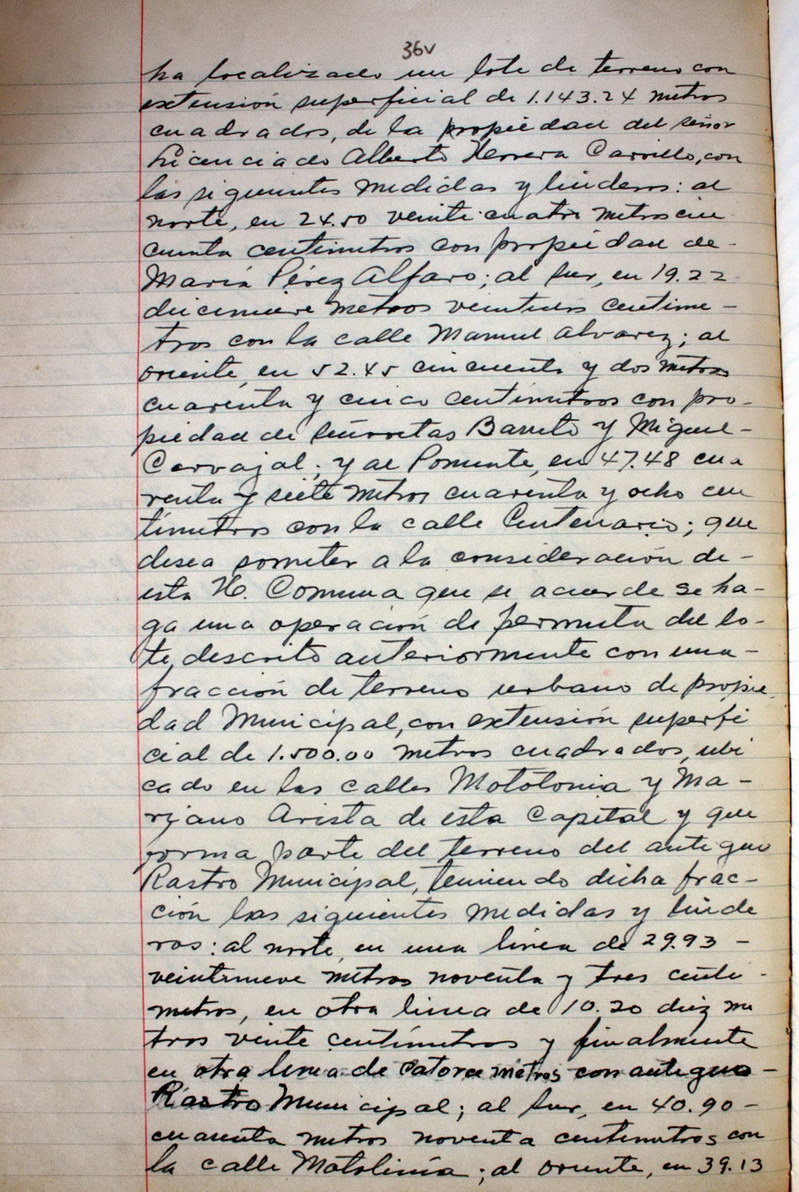 36v
ha localizado un lote de terreno con
extensión superficial de 1.143.24 metros
cuadrados, de la propiedad del señor
Licenciado Alberto Herrera Carrillo, con
las siguientes medidas y linderos: al
norte, en 24.50 veinte cuatro metros cin
cuenta centimetros con propiedad de-
María Pérez Alfaro; al Sur, en 19.22
diecinueve metros veintidos centime-
tros con la calle Manuel Alvarez; al
oriente, en 52.45 cincuenta y dos metros
cuarenta y cinco centimetros con pro-
piedad de señoritas Barreto y Miguel-
Carvajal; y al Poniente, en 47.48 cua
renta y siete metros cuarenta y ocho cen
tímetros con la calle Centenario; que
desea someter a la consideración de-
esta H. Comuna que se acuerde se ha-
ga una operación de permuta del lo-
te, descrito anteriormente con una-
fracción de terreno urbano de propie-
dad Municipal, con extensión superfi
cial de 1.500.00 metros cuadrados, ubi
cado en las calles Motolonia y Ma-
riano Arista de esta Capital y que
forma parte del terreno del antiguo
Rastro Municipal, teniendo dicha frac-
ción las siguientes medidas y linde
ros: al norte, en una linea de 29.93 -
veintinueve metros noventa y tres centi-
metros, en otra linea de 10.20 diez me
tros veinte centímetros y finalmente
en otra linea de catorce metros con antiguo-
Rastro Municipal; al Sur, en 40.90-
cuarenta metros noventa centimetros con
la calle Motolinía; al oriente, en 39.13